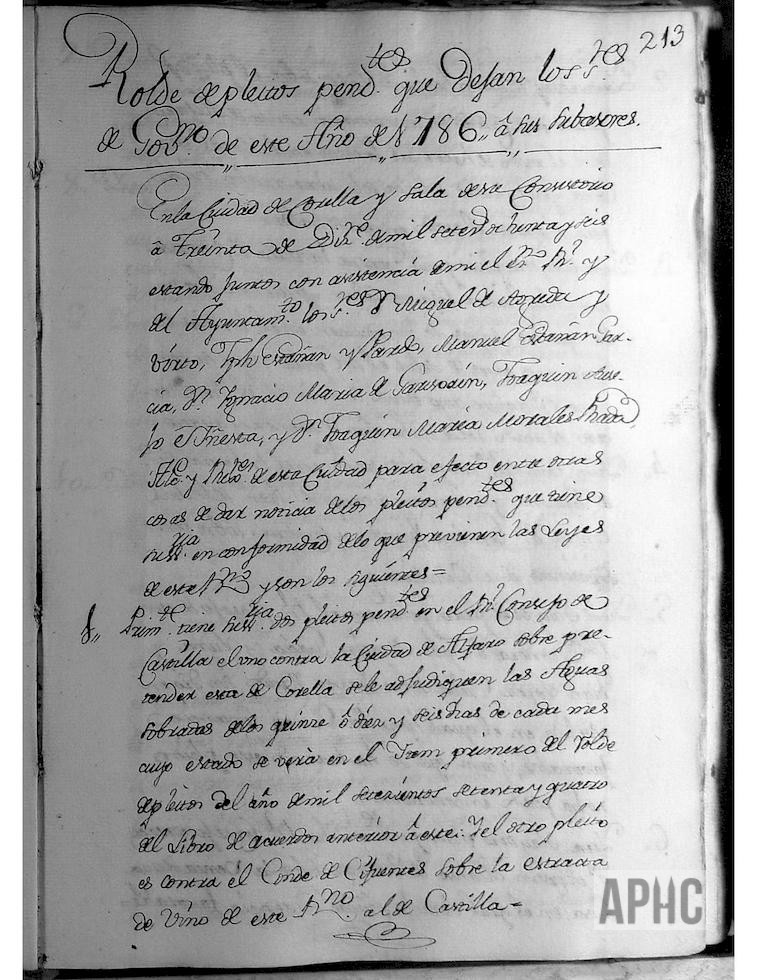 213
Rolde de pleitos pend.tes que dejan los s.res
de Gov.no de este Año de 1786,, â sus subcesores.
En la Ciudad de Corella y Sala de su Consistorio
â Treinta de Di.re de mil setez.s ochenta y seis
estando Juntos con asistencia de mi el Ess.no R.l y
del Ayuntam.to los s.res D.n Miguel de Agreda y
Vírto, Jph Escudero y Pardo, Manuel Garcia,
D.n Ygnacio Maria de Garisoain, Joaquin
é Yñesta, y D.n Joaquin Maria Morales Rada,
Alc.e y Rex.es de esta Ciudad para efecto entre otras
cosas de dar noticia de los pleitos pend.tes que tiene
su ss.ria en conformidad de lo que previenen las Leyes
de este R.no y son los siguientes=
1,, Prim.te tiene su ss.ria dos pleitos pend.tes en el R.l Consejo de
Castilla el uno contra la Ciudad de Alfaro sobre pre-
tender esta de Corella se le adjudiquen las Aguas
sobradas de los quinze ô diez y seis dias de cada mes
cuyo estado se verà en el Item primero del Rolde
de pleitos del año de mil setezientos setenta y quatro
del Libro de acuerdos anteríor â este: Y el otro pleito
es contra el Conde de Cifuentes sobre la estracta
de Víno de este R.no al de Castilla=
APHC